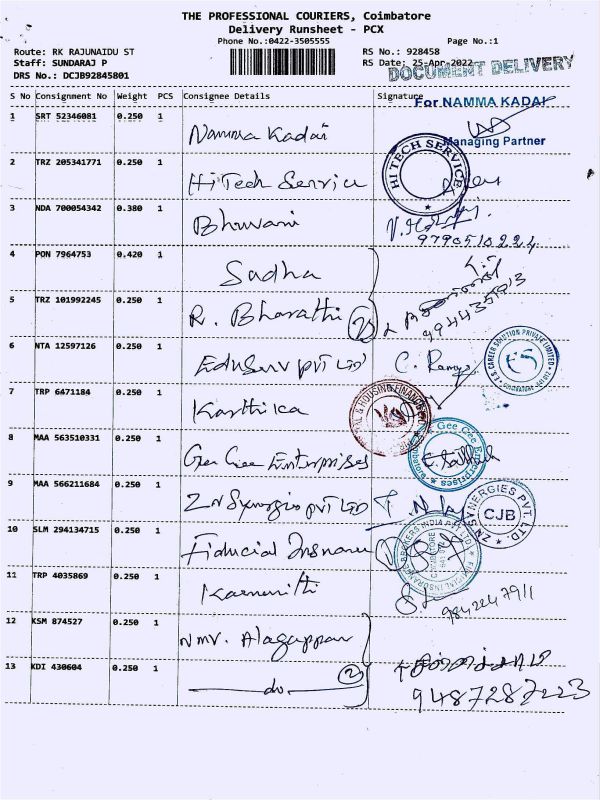 THE PROFESSIONAL COURIERS, Coimbatore
Delivery Runsheet - PCX
Phone No.:0422-3505555 Page No.:1
Route: RK RAJUNAIDU ST RS No.: 928458
Staff: SUNDARAJ P RS Date: 25-Apr-2022
DRS No.: DCJB92845801 DOCUMENT DELIVERY
S No Consignment No Weight PCS Consignee Details Signature
For NAMMA KADAI
1 SRT 52346081 0.250 1 Namma Kadai
Managing Partner
2 TRZ 205341771 0.250 1 HiTech Service HI TECH SERVICE
3 NDA 700054342 0.380 1 Bhuvani
9790510224
4 PON 7964753 0.420 1 Sadha
5 TRZ 101992245 0.250 1 R. Bharathi (2) 9944357013
6 NTA 12597126 0.250 1 EduServ pvt Ltd C. Ramya
7 TRP 6471184 0.250 1 Karthika
8 MAA 563510331 0.250 1 Gee Gee Enterprises Gee Gee Enterprises
9 MAA 566211684 0.250 1 ZN Synergies pvt Ltd ZN SYNERGIES PVT. LTD. CJB
10 SLM 294134715 0.250 1 Fiducial Insurance
11 TRP 4035869 0.250 1 Karunnithi
9842247911
12 KSM 874527 0.250 1 NMV. Alagappan
13 KDI 430604 0.250 1 do (2)
9487287223